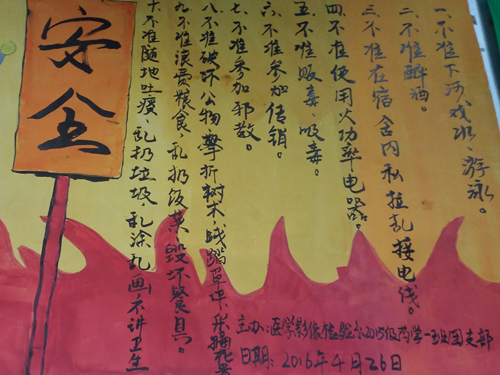 一.不准下河戏水、游泳。
二.不准酗酒。
三.不准在宿舍内私拉乱接电线。
四.不准使用大功率电器。
五.不准贩毒、吸毒。
六.不准参加传销。
七.不准参加邪教。
八.不准破坏公物,攀折树木,践踏草坪,乱摘花
九.不准浪费粮食、乱扔饭菜,毁坏餐具。
十.不准随地吐痰、乱扔垃圾、乱涂乱画不讲卫生
安全
主办:医学影像检验系2015级药学一班团支部
日期:2016年4月26日